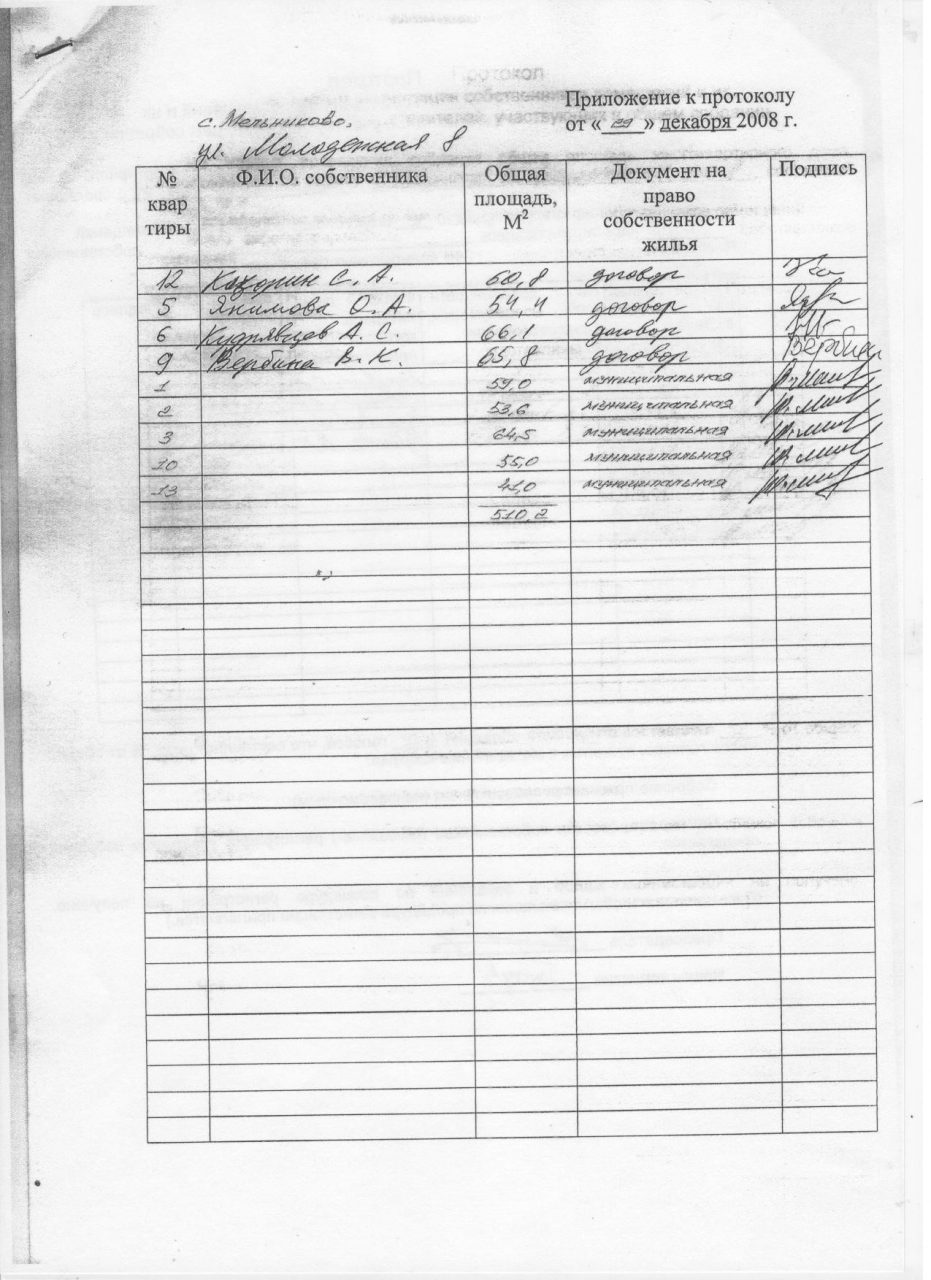 с. Мельниково,
ул. Молодежная 8
Приложение к протоколу
от « 29 » декабря 2008 г.
№ квар тиры Ф.И.О. собственника Общая площадь, М2 Документ на право собственности жилья Подпись
12 С. А. 60,8 договор
5 Якимова О. А. 54,4 договор
6 Кудрявцев А. С. 66,1 договор
9 Вербина В. К. 65,8 договор Вербина
1 59,0 муниципальная
2 53,6 муниципальная
3 64,5 муниципальная
10 55,0 муниципальная
13 41,0 муниципальная
510,2